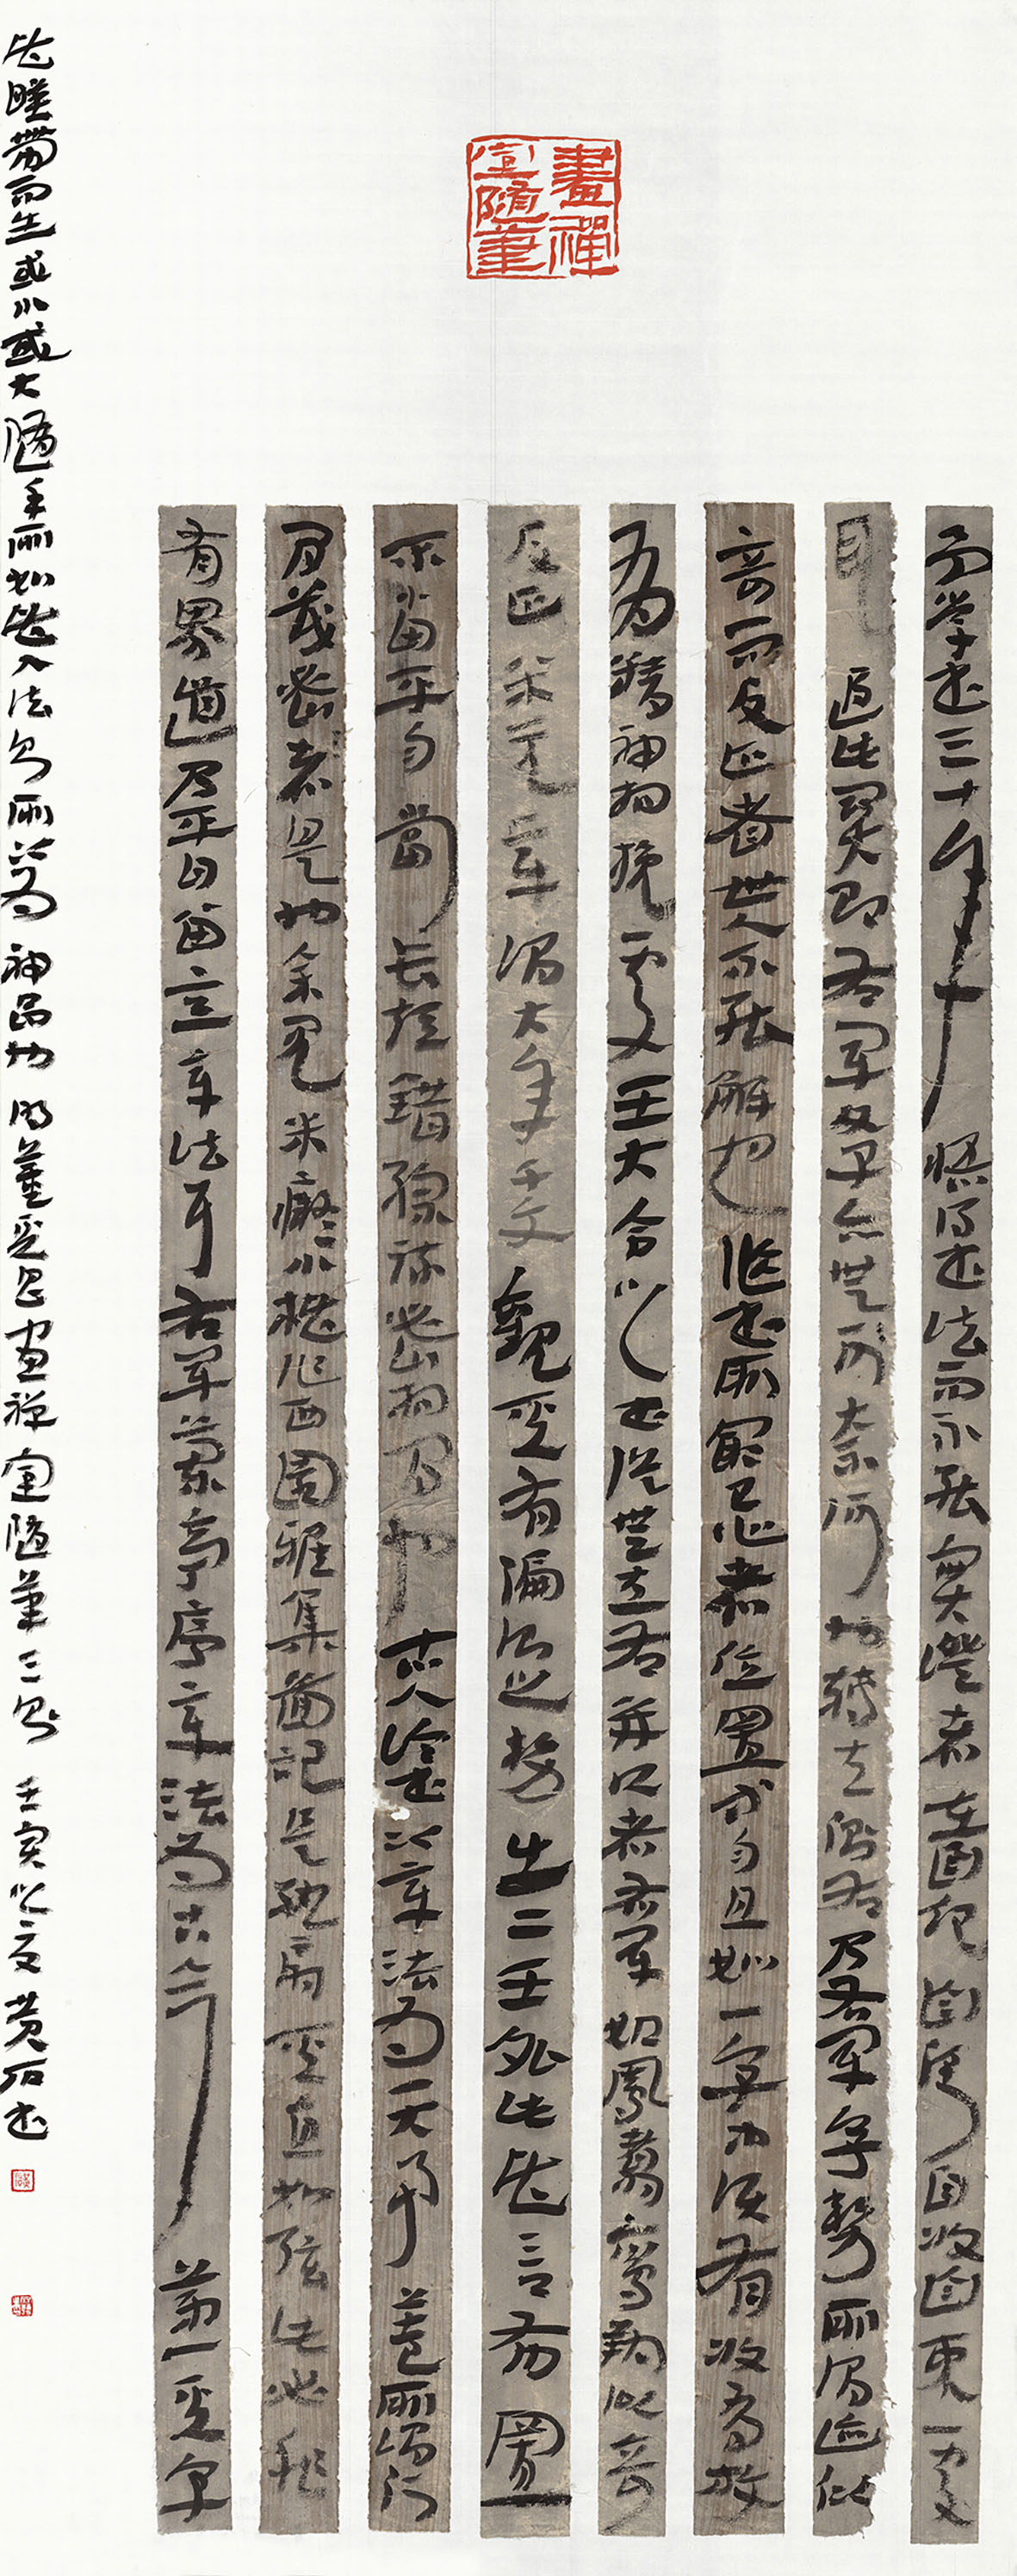 畫禪
室隨筆
余學書三十年悟得書法而不能實證者在自起自倒自收自束處
耳過此關即右軍父子亦無所奈何也轉左側右乃右軍字勢所謂迹似
奇而反正者世人不能解也臨書所最忌者位置等勻且如一字中須有收有放
有精神相挽處王大令之書從無左右並頭者右軍如鳳翥鸞翔似奇
反正米元章謂大年千文觀其有偏側之勢出二王外此皆言布置
不當平勻當長短錯綜疏密相間也古人論書以章法爲一大事蓋所謂行
間茂密者是也余見米癡小楷作西園雅集圖記是紈扇其直如弦此必非
有異道乃平日留意章法耳右軍蘭亭序章法爲古今第一其字
皆映帶而生或小或大隨手所如皆入法則所以爲神品也明董其昌畫禪室隨筆三則壬寅之夏黄石書